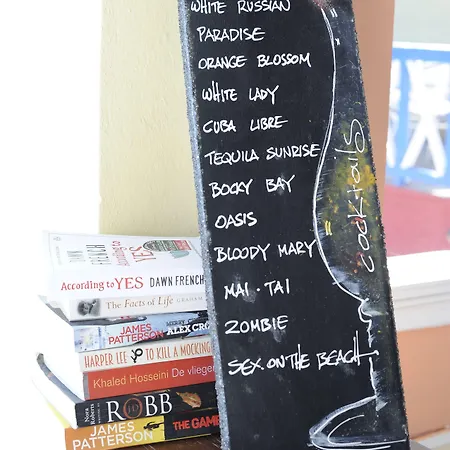 WHITE RUSSIAN
PARADISE
ORANGE BLOSSOM
WHITE LADY
CUBA LIBRE
TEQUILA SUNRISE
BOCKY BAY
OASIS
BLOODY MARY
MAI·TAI
ZOMBIE
SEX.ON.THE BEACH
cocktails
DAWN FRENCH
According to
YES
According to YES DAWN FRENCH
The Facts of Life GRAHAM
JAMES PATTERSON MERRY ALEX CRO
HARPER LEE TO KILL A MOCKING
Khaled Hosseini De vlieger
Nora Roberts ROBB
JAMES PATTERSON THE GAME